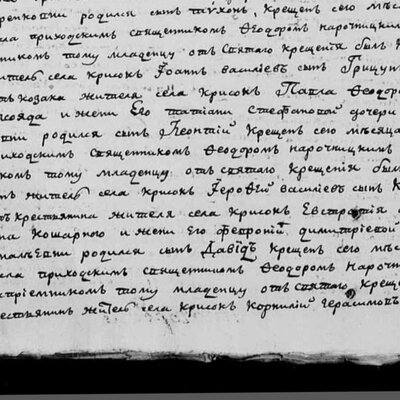 родился сынъ Тихонъ, Крещенъ сего мѣс
приходскимъ священникомъ Ѳеодоромъ нарочницкимъ
никомъ тому младенцу отъ святаго крещенія былъ
житель села крисокъ Іоанъ василіевъ сынъ Грицун
козака жителя села крисокъ Павла Ѳеодоро
и жены Его татіаны Стефановой дочери
родился сынъ Леонтій Крещенъ сего мѣсяца
риходскимъ священникомъ Ѳеодоромъ нарочницкимъ
комъ тому младенцу отъ святаго крещенія былъ
житель села крисокъ Іероѳей василіевъ сынъ К
крестьянина жителя села крисокъ Евстратія
Кошарного и жены Его февроніи димитріевой
родился сынъ Давидъ Крещенъ сего мѣс
села приходскимъ священникомъ Ѳеодоромъ нарочн
стріемникомъ тому младенцу отъ святаго креще
естьянинъ житель села крисокъ Корнилій Герасимовъ